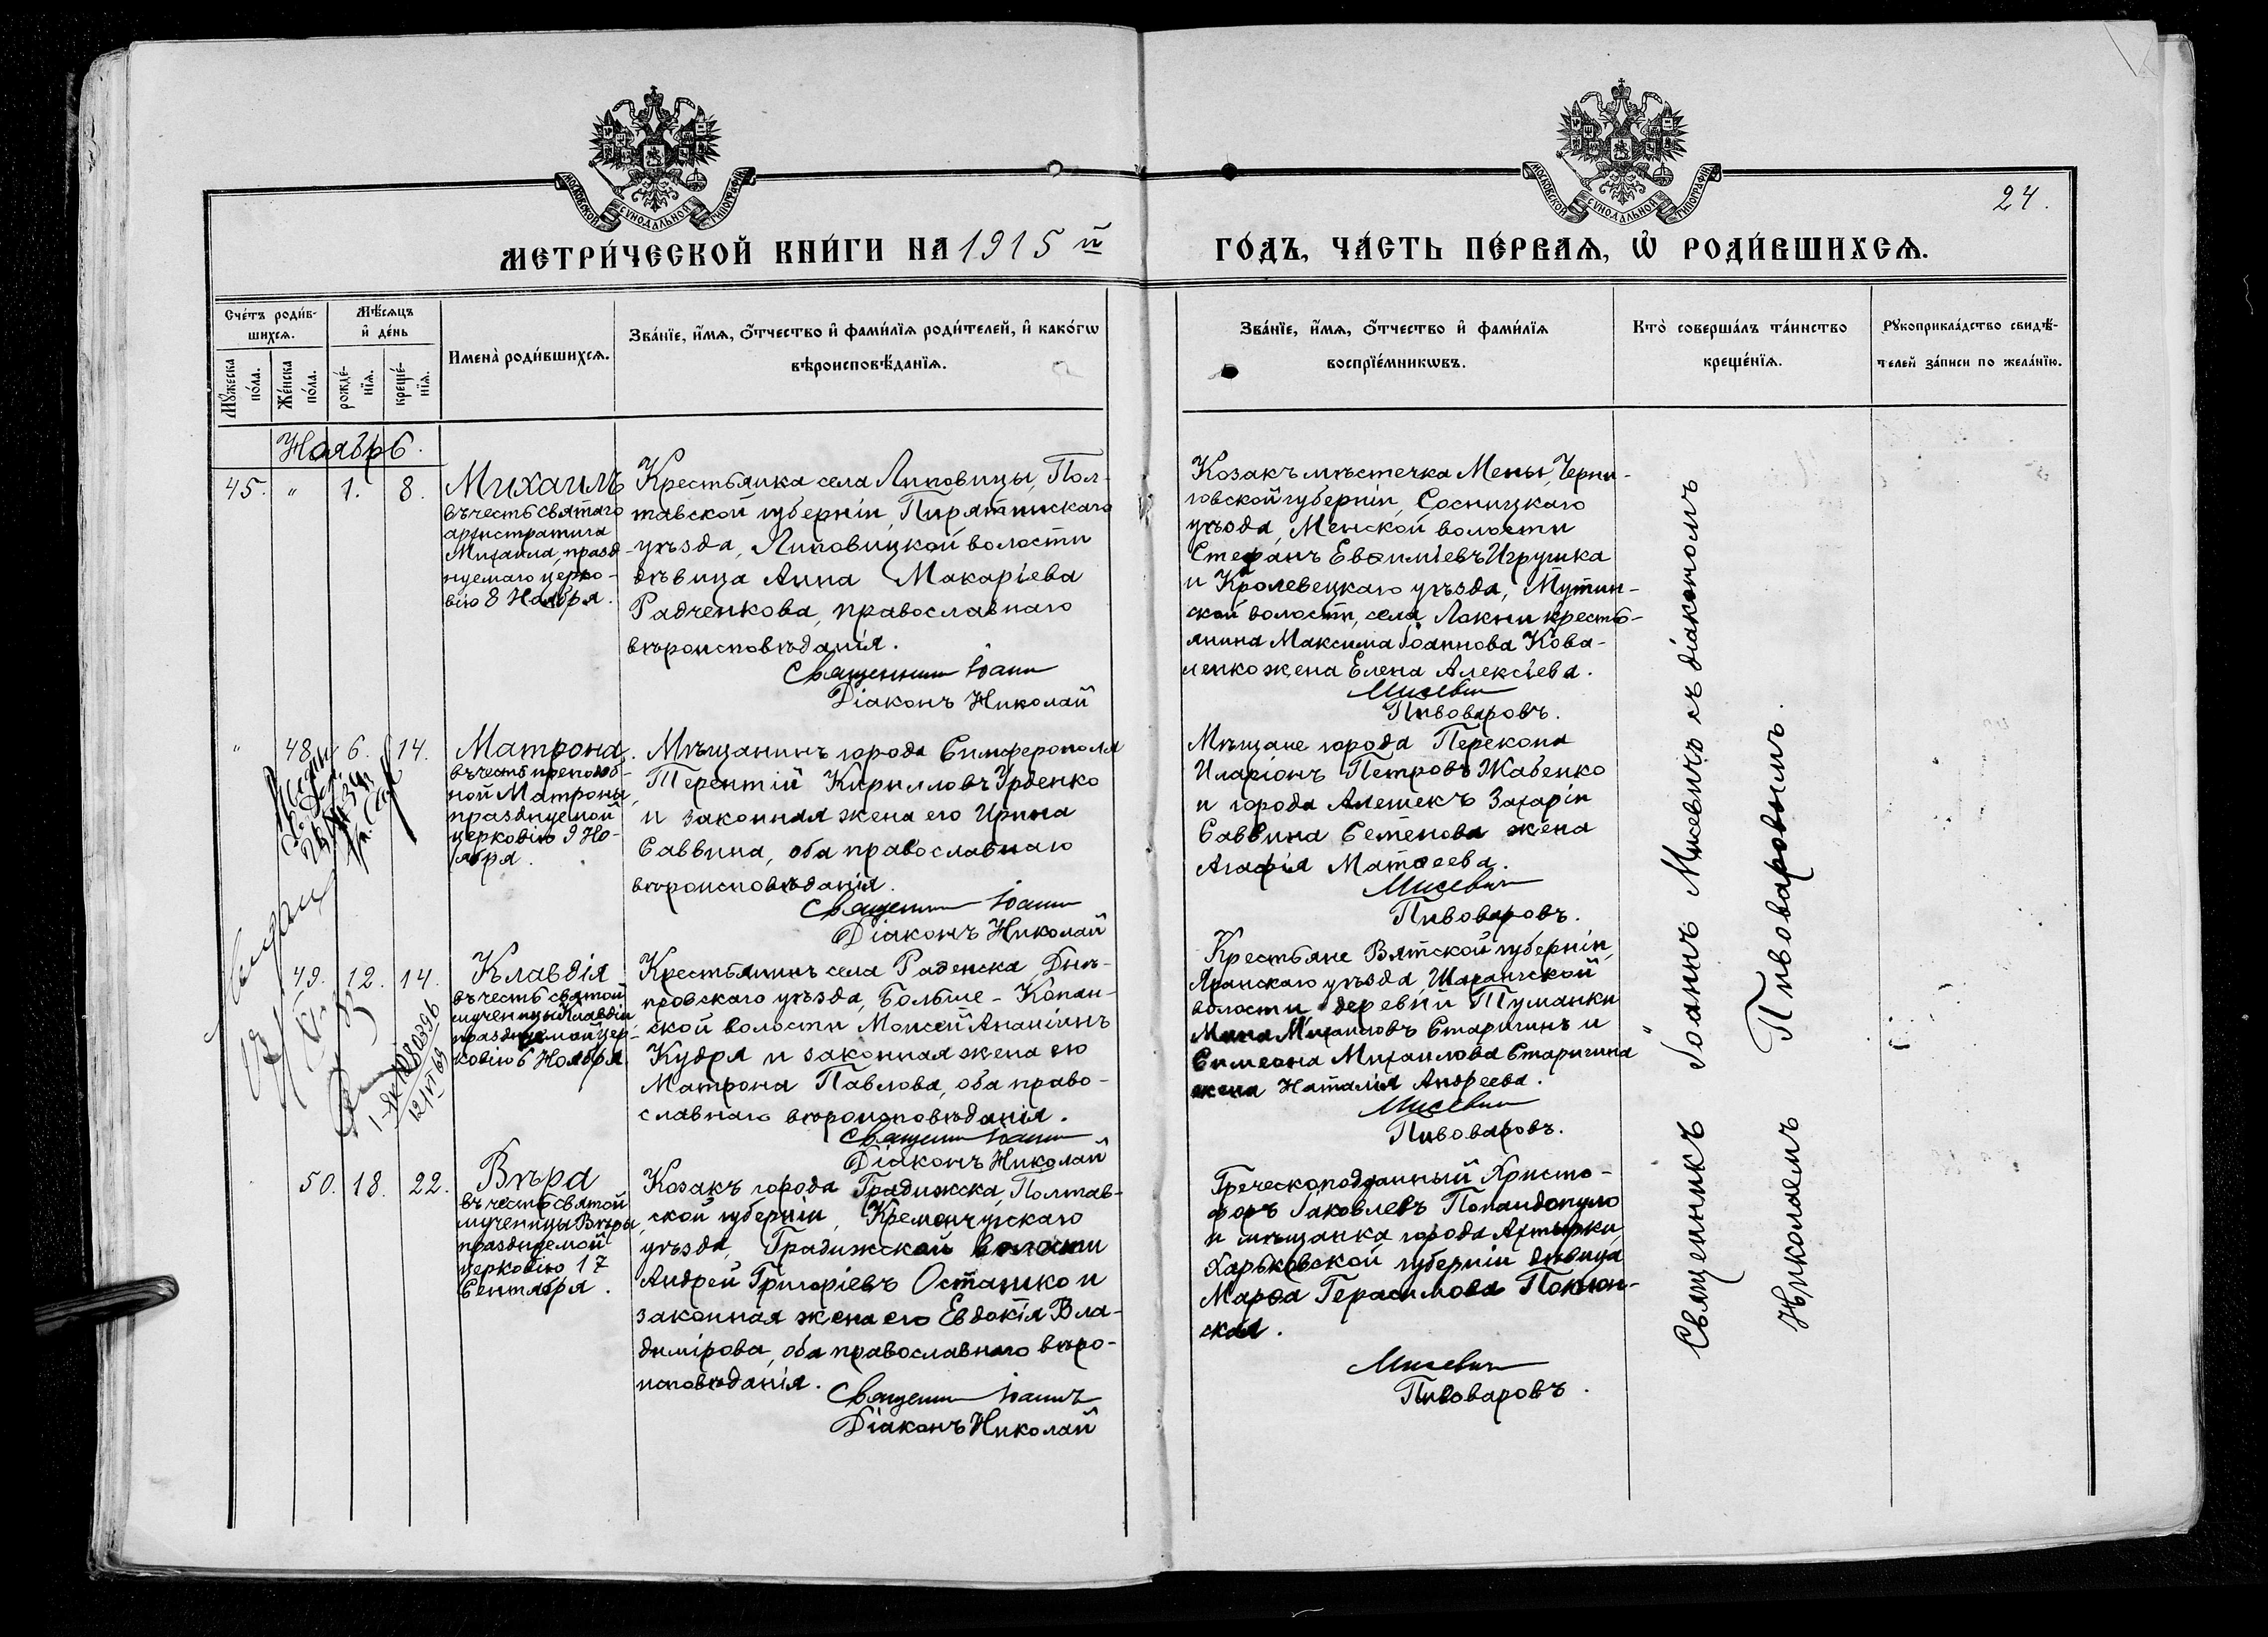 МОСКОВСКОЙ СѴНОДАЛЬНОЙ ТИПОГРАФІИ
МОСКОВСКОЙ СѴНОДАЛЬНОЙ ТИПОГРАФІИ
24.
МЕТРИ́ЧЕСКОЙ КНИ́ГИ НА 1915 й
ГО́ДЪ, ЧА́СТЬ ПЕ́РВАѦ, Ѡ҆ РОДИ́ВШИХСѦ.
Сче́тъ роди́в-
шихсѧ.
Мꙋ́жеска
по́ла.
Же́нска
по́ла.
Мѣ́сѧцъ
и҆ де́нь
рожде́-
нїѧ.
креще́-
нїѧ.
Имена̀ роди́вшихсѧ.
Зва́нїе, и҆́мѧ, ѻ҆́тчество и҆ фами́лїѧ роди́телей, и҆ како́гѡ
вѣроисповѣ́данїѧ.
Зва́нїе, и҆́мѧ, ѻ҆́тчество и҆ фами́лїѧ
воспрїе́мникѡвъ.
Кто̀ соверша́лъ та́инство
креще́нїѧ.
Рꙋкоприкла́дство свидѣ́-
телей за́писи по жела́нїю.
Ноябрь.
45. " 1. 8.
Михаилъ
въ честь святаго
архистратига
Михаила, празд-
нуемаго церко-
вію 8 Ноября.
Крестьянка села Липовицы, Пол-
тавской губерніи, Пирятинскаго
уѣзда, Липовицкой волости
дѣвица Анна Макаріева
Радченкова, православнаго
вѣроисповѣданія.
Священникъ Іоаннъ
Діаконъ Николай
Козакъ мѣстечка Мены, Черни-
говской губерніи, Сосницкаго
уѣзда, Менской волости
Стефанъ Евѳиміевъ Игрушка
и Кролевецкаго уѣзда, Мутин-
ской волости, села Локни кресть-
янина Максима Іоаннова Кова-
ленко жена Елена Алексіева.
Мисевич
Пивоваровъ.
" 48. 6. 14.
Матрона
въ честь преподоб-
ной Матроны,
празднуемой
церковію 9 Но-
ября.
Мѣщанинъ города Симферополя
Терентій Кирилловъ Урденко
и законная жена его Ирина
Саввина, оба православнаго
вѣроисповѣданія.
Священник Іоанн
Діаконъ Николай
Мѣщане города Перекопа
Иларіонъ Петровъ Жабенко
и города Алешекъ Захаріи
Саввина Семенова жена
Агафія Матѳеева.
Мисевич
Пивоваровъ.
49. 12. 14.
Клавдія
въ честь святой
мученицы Клавдіи
празднуемой цер-
ковію 6 Ноября
Крестьянинъ села Раденска, Днѣ-
провскаго уѣзда, Больше-Копан-
ской волости Моисей Ананіинъ
Кудря и законная жена его
Матрона Павлова, оба право-
славнаго вѣроисповѣданія.
Священник Іоанн
Діаконъ Николай
Крестьяне Вятской губерніи,
Яранскаго уѣзда, Шарангской
волости деревни Туманки
Михаиловъ Старигинъ и
Симеона Михаилова Старигина
жена Наталія Андреева.
Мисевич
Пивоваровъ.
12/VI 69
50. 18. 22.
Вѣра
въ честь святой
мученицы Вѣры,
празднуемой
церковію 17
Сентября.
Козакъ города Градижска, Полтав-
ской губерніи, Кременчугскаго
уѣзда, Градижской волости
Андрей Григоріевъ Осташко и
законная жена его Евдокія Вла-
димірова, оба православнаго вѣро-
исповѣданія.
Священник Іоаннъ
Діаконъ Николай
Греческоподданный Христо-
форъ Іаковлевъ Попандопуло
и мѣщанка города Ахтырки,
Харьковской губерніи дѣвица
Марѳа Герасимова
ская.
Мисевич
Пивоваровъ.
Священникъ Іоаннъ Мисевичъ съ діакономъ
Николаемъ Пивоваровымъ.